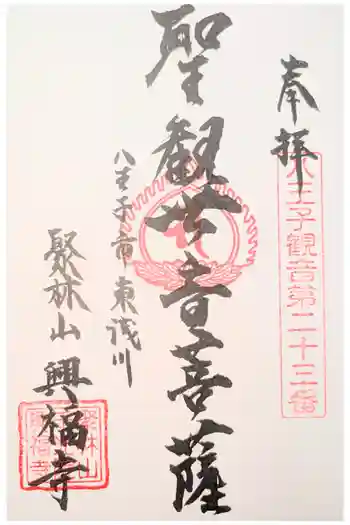 奉拝
八王子観音第二十三番
聖観世音菩薩
八王子市東浅川
聚林山
興福寺
聚林山
興福寺